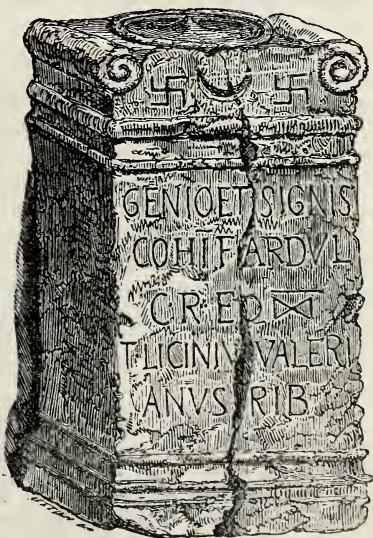 GENIO ET SIGNIS
COH I F VARDVL
CR EQ ⋈
T LICINIV VALERI
ANVS RIB